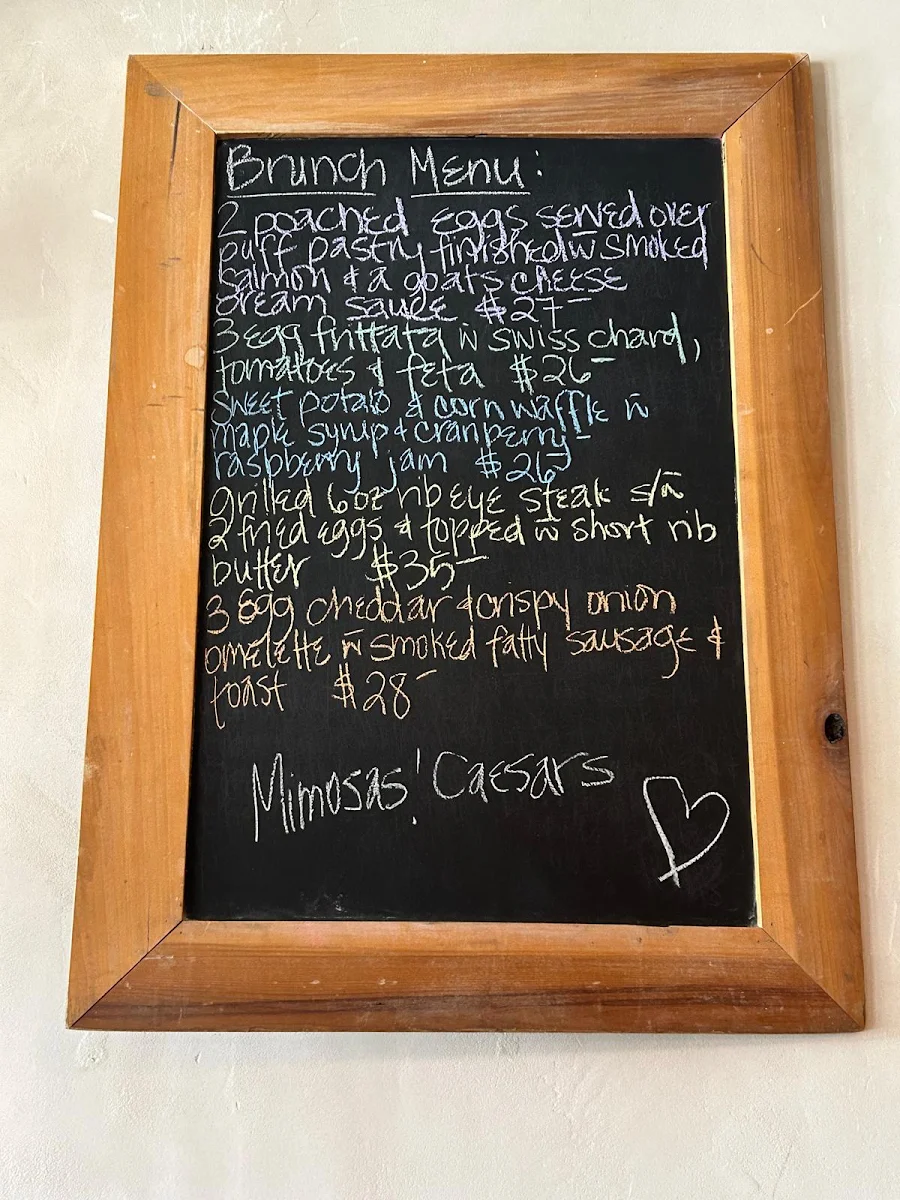 Brunch Menu:
2 poached eggs served over
puff pastry finished w̄ smoked
salmon & a goats cheese
cream sauce $27-
3 egg frittata w̄ swiss chard,
tomatoes & feta $26-
sweet potato & corn waffle w̄
maple syrup & cranberry-
raspberry jam $26-
grilled 6oz rib eye steak s/w̄
2 fried eggs & topped w̄ short rib
butter $35-
3 egg cheddar & crispy onion
omelette w̄ smoked fatty sausage &
toast $28-
Mimosas! Caesars